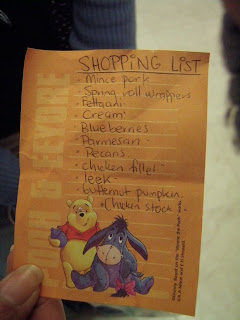 SHOPPING LIST
· Mince pork
· Spring roll wrappers
· Fettucini
· Cream
· Blueberries
· Parmesan
· Pecans
· Chicken fillet
· leek
· butternut pumpkin
· Chicken stock
POOH & EEYORE